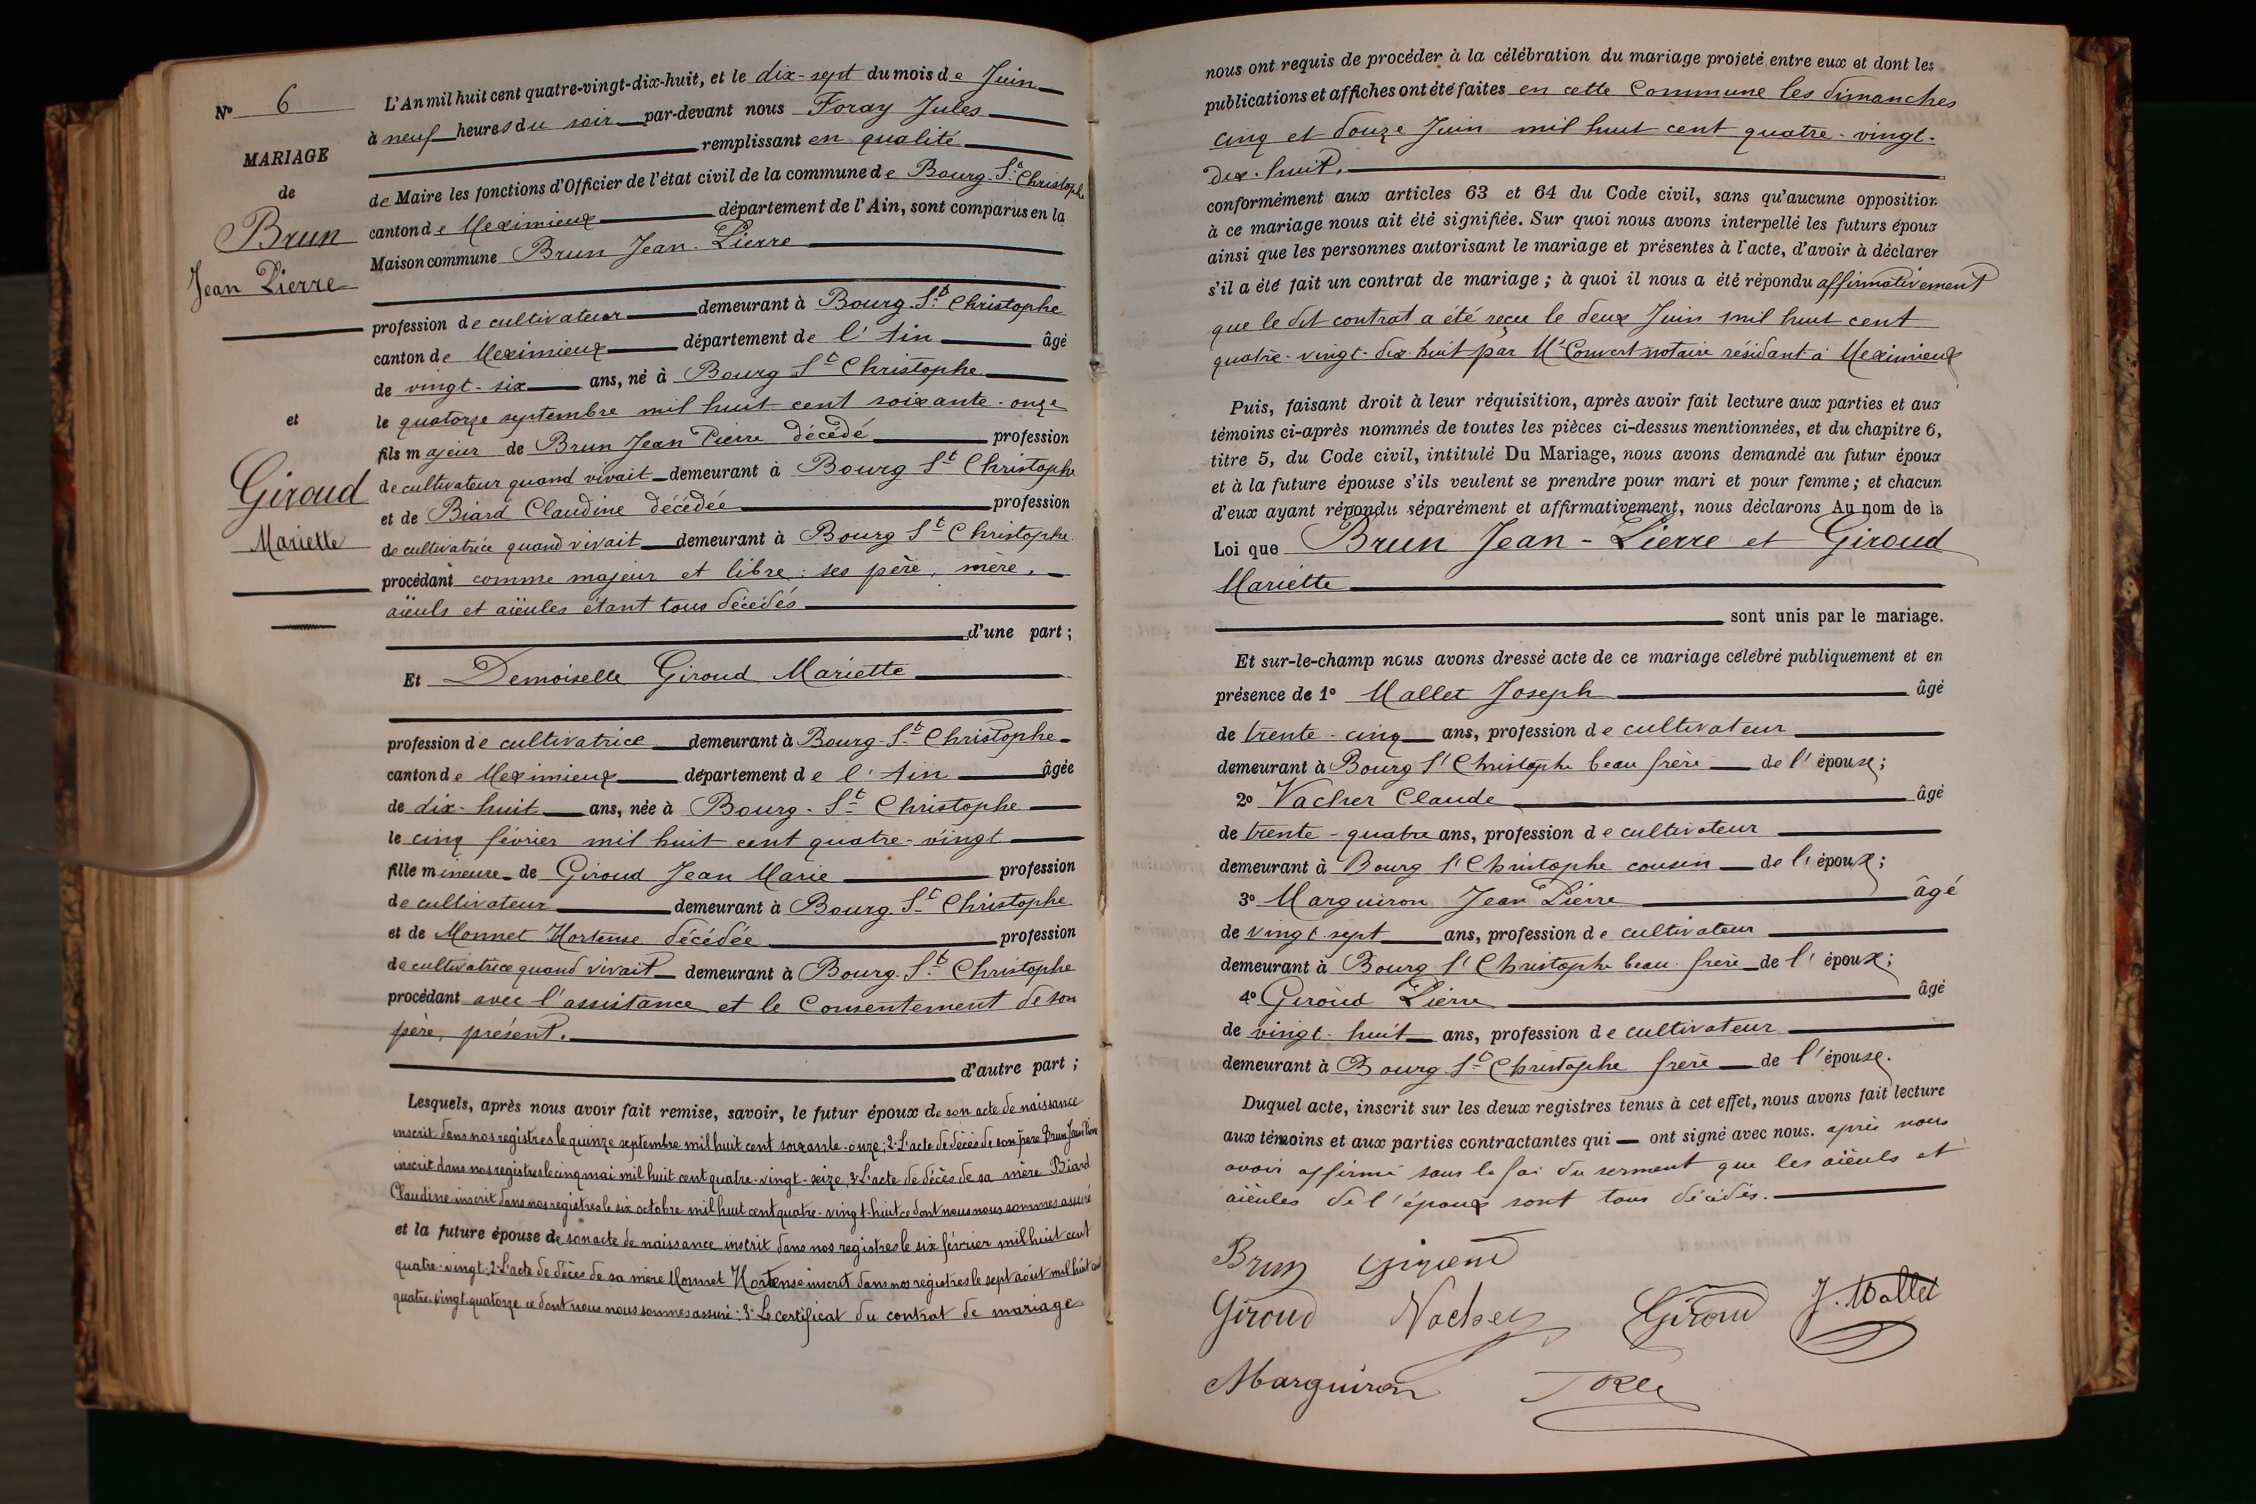 N° 6
MARIAGE
de
Brun
Jean Pierre
et
Giroud
Mariette
L'An mil huit cent quatre-vingt-dix-huit, et le dix-sept du mois de Juin
à neuf heures du soir par-devant nous Foray Jules
remplissant en qualité
de Maire les fonctions d'Officier de l'état civil de la commune de Bourg-St Christophe
canton de Meximieux département de l'Ain, sont comparus en la
Maison commune Brun Jean-Pierre
profession de cultivateur demeurant à Bourg-St Christophe
canton de Meximieux département de l'Ain âgé
de vingt-six ans, né à Bourg St Christophe
le quatorze septembre mil huit cent soixante-onze
fils majeur de Brun Jean Pierre décédé profession
de cultivateur quand vivait demeurant à Bourg St Christophe
et de Biard Claudine décédée profession
de cultivatrice quand vivait demeurant à Bourg St Christophe
procédant comme majeur et libre: ses père, mère,
aïeuls et aïeules étant tous décédés
d'une part;
Et Demoiselle Giroud Mariette
profession de cultivatrice demeurant à Bourg-St Christophe
canton de Meximieux département de l'Ain âgée
de dix-huit ans, née à Bourg-St Christophe
le cinq février mil huit cent quatre-vingt
fille mineure de Giroud Jean Marie profession
de cultivateur demeurant à Bourg St Christophe
et de Monnet Hortense décédée profession
de cultivatrice quand vivait demeurant à Bourg-St Christophe
procédant avec l'assistance et le Consentement de son
père, présent.
d'autre part;
Lesquels, après nous avoir fait remise, savoir, le futur époux de son acte de naissance
inscrit dans nos registres le quinze septembre mil huit cent soixante-onze; 2° L'acte de décès de son père Brun Jean Pierre
inscrit dans nos registres le cinq mai mil huit cent quatre-vingt-seize, 3° L'acte de décès de sa mère Biard
Claudine inscrit dans nos registres le six octobre mil huit cent quatre-vingt-huit ce dont nous nous sommes assuré
et la future épouse de son acte de naissance inscrit dans nos registres le six février mil huit cent
quatre-vingt; 2° L'acte de décès de sa mère Monnet Hortense inscrit dans nos registres le sept août mil huit cent
quatre-vingt quatorze ce dont nous nous sommes assuré: 3° Le certificat du contrat de mariage
nous ont requis de procéder à la célébration du mariage projeté entre eux et dont les
publications et affiches ont été faites en cette Commune les dimanches
cinq et douze Juin mil huit cent quatre-vingt-
dix-huit,
conformément aux articles 63 et 64 du Code civil, sans qu'aucune opposition
à ce mariage nous ait été signifiée. Sur quoi nous avons interpellé les futurs époux
ainsi que les personnes autorisant le mariage et présentes à l'acte, d'avoir à déclarer
s'il a été fait un contrat de mariage; à quoi il nous a été répondu affirmativement
que le dit contrat a été reçu le deux Juin mil huit cent
quatre-vingt-dix-huit par Me Convert notaire résidant à Meximieux
Puis, faisant droit à leur réquisition, après avoir fait lecture aux parties et aux
témoins ci-après nommés de toutes les pièces ci-dessus mentionnées, et du chapitre 6,
titre 5, du Code civil, intitulé Du Mariage, nous avons demandé au futur époux
et à la future épouse s'ils veulent se prendre pour mari et pour femme; et chacun
d'eux ayant répondu séparément et affirmativement, nous déclarons Au nom de la
Loi que Brun Jean-Pierre et Giroud
Mariette
sont unis par le mariage.
Et sur-le-champ nous avons dressé acte de ce mariage célébré publiquement et en
présence de 1° Mallet Joseph âgé
de trente-cinq ans, profession de cultivateur
demeurant à Bourg St Christophe beau frère de l'épouse;
2° Vacher Claude âgé
de trente-quatre ans, profession de cultivateur
demeurant à Bourg St Christophe cousin de l'époux;
3° Marguiron Jean Pierre âgé
de vingt-sept ans, profession de cultivateur
demeurant à Bourg St Christophe beau-frère de l'époux;
4° Giroud Pierre âgé
de vingt-huit ans, profession de cultivateur
demeurant à Bourg-St Christophe frère de l'épouse.
Duquel acte, inscrit sur les deux registres tenus à cet effet, nous avons fait lecture
aux témoins et aux parties contractantes qui ont signé avec nous. après nous
avoir affirmé sous la foi du serment que les aïeuls et
aïeules de l'époux sont tous décédés.
Brun Giroud
Giroud Vacher Giroud J. Mallet
Marguiron